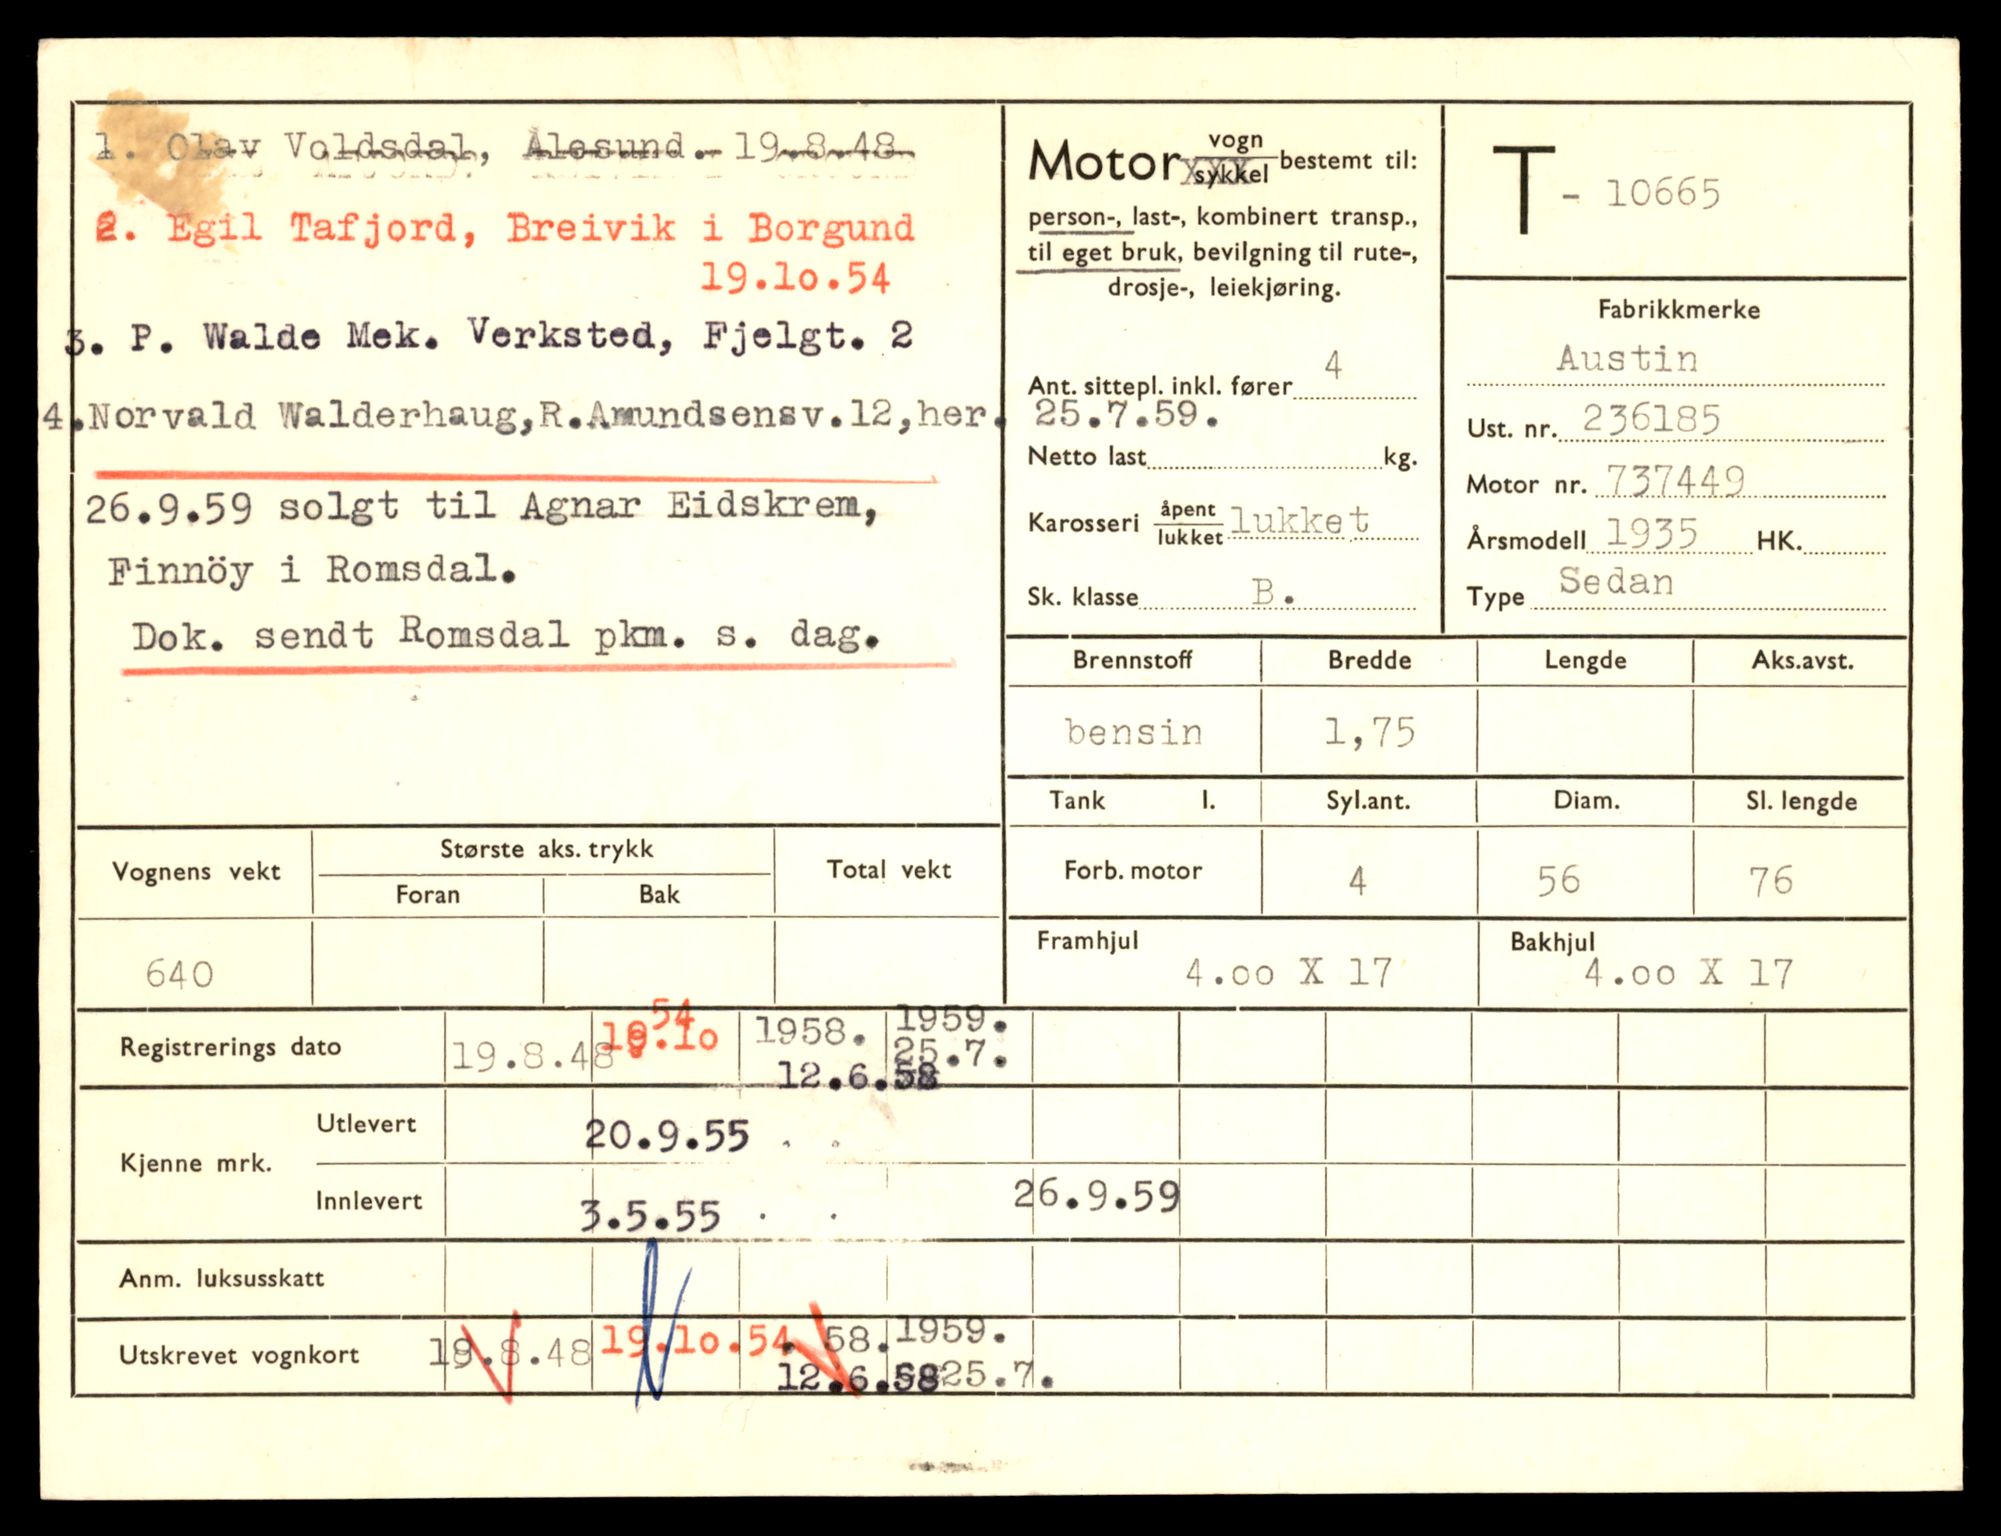 1. Olav Voldsdal, Ålesund.- 19.8.48
2. Egil Tafjord, Breivik i Borgund
19.lo.54
3. P. Walde Mek. Verksted, Fjelgt. 2
4.Norvald Walderhaug,R.Amundsensv.12,her. 25.7.59.
26.9.59 solgt til Agnar Eidskrem,
Finnöy i Romsdal.
Dok. sendt Romsdal pkm. s. dag.
Motor vogn/sykkel bestemt til:
person-, last-, kombinert transp.,
til eget bruk, bevilgning til rute-,
drosje-, leiekjøring.
Ant. sittepl. inkl. fører 4
Netto last kg.
Karosseri åpent/lukket lukket
Sk. klasse B.
T - 10665
Fabrikkmerke
Austin
Ust. nr. 236185
Motor nr. 737449
Årsmodell 1935 HK.
Type Sedan
Brennstoff Bredde Lengde Aks.avst.
bensin 1,75
Tank l. Syl.ant. Diam. Sl. lengde
Forb. motor 4 56 76
Framhjul 4.oo X 17 Bakhjul 4.oo X 17
Vognens vekt Største aks. trykk Total vekt
Foran Bak
640
Registrerings dato 19.8.48 19.lo 54 1958. 12.6.58 1959. 25.7.
Kjenne mrk.
Utlevert 20.9.55
Innlevert 3.5.55 26.9.59
Anm. luksusskatt
Utskrevet vognkort 19.8.48 19.lo.54 58. 12.6.58 1959. 25.7.